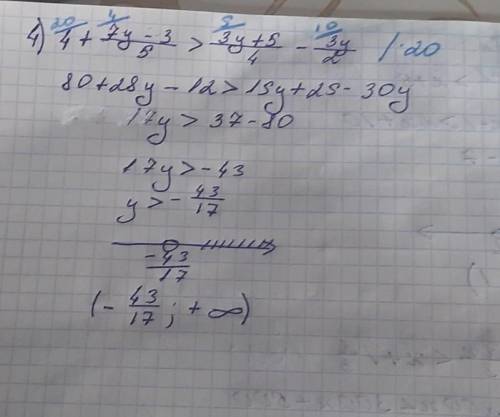 4) 20/ 4 + 4/ 7y - 3 / 5 > 5/ 3y + 5 / 4 - 10/ 3y / 2 /·20
80 + 28y - 12 > 15y + 25 - 30y
17y > 37 - 80
17y > - 43
y > - 43/17
-43/17
(- 43/17 ; + ∞)